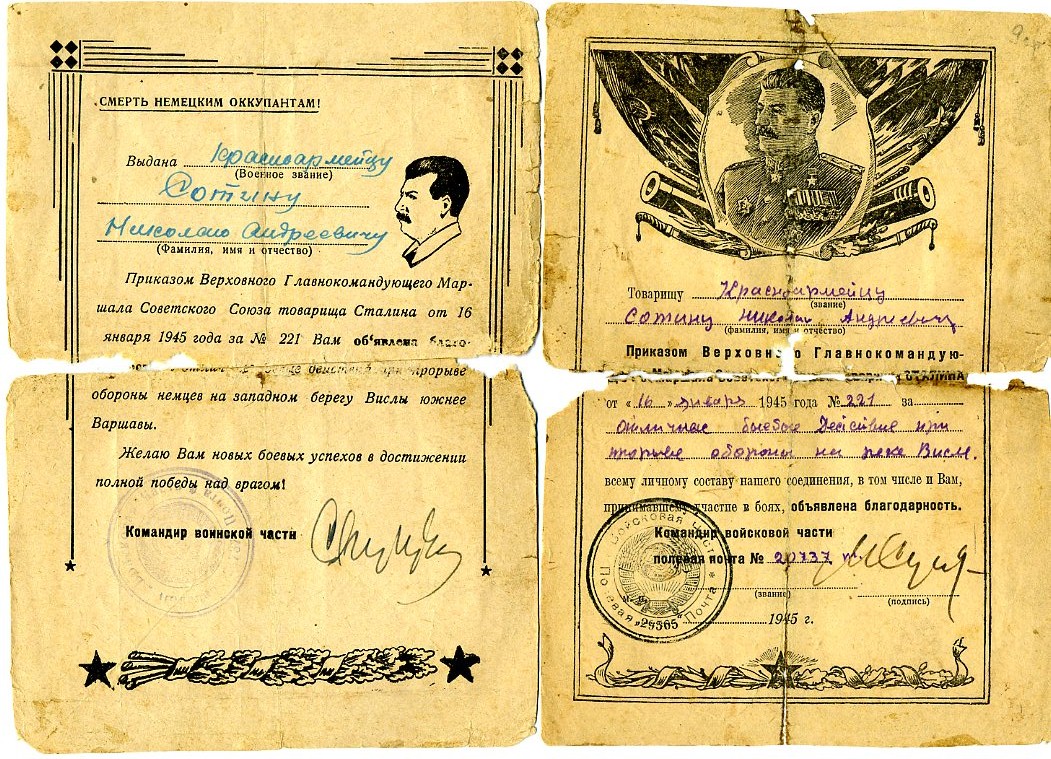 СМЕРТЬ НЕМЕЦКИМ ОККУПАНТАМ!
Выдана Красноармейцу
(Военное звание)
Сотину
Николаю Андреевичу
(Фамилия, имя и отчество)
Приказом Верховного Главнокомандующего Мар-
шала Советского Союза товарища Сталина от 16
января 1945 года за № 221 Вам об'явлена благо-
при прорыве
обороны немцев на западном берегу Вислы южнее
Варшавы.
Желаю Вам новых боевых успехов в достижении
полной победы над врагом!
Командир воинской части
9
Товарищу Красноармейцу
(звание)
Сотину Николаю Андреевичу
(фамилия, имя и отчество)
Приказом Верховного Главнокомандую-
СТАЛИНА
от «16» января 1945 года № 221 за
отличные боевые действие при
прорыве обороны на реке Висле.
всему личному составу нашего соединения, в том числе и Вам,
принимавшему участие в боях, объявлена благодарность.
Командир войсковой части
полевая почта № 20737
(звание)
(подпись)
1945 г.
Войсковая часть
Полевая Почта
"29365"